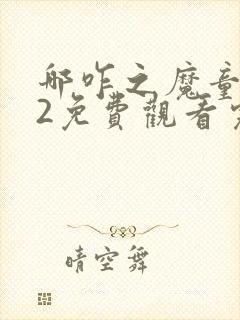 哪咤之魔童
2免費觀看
晴空舞